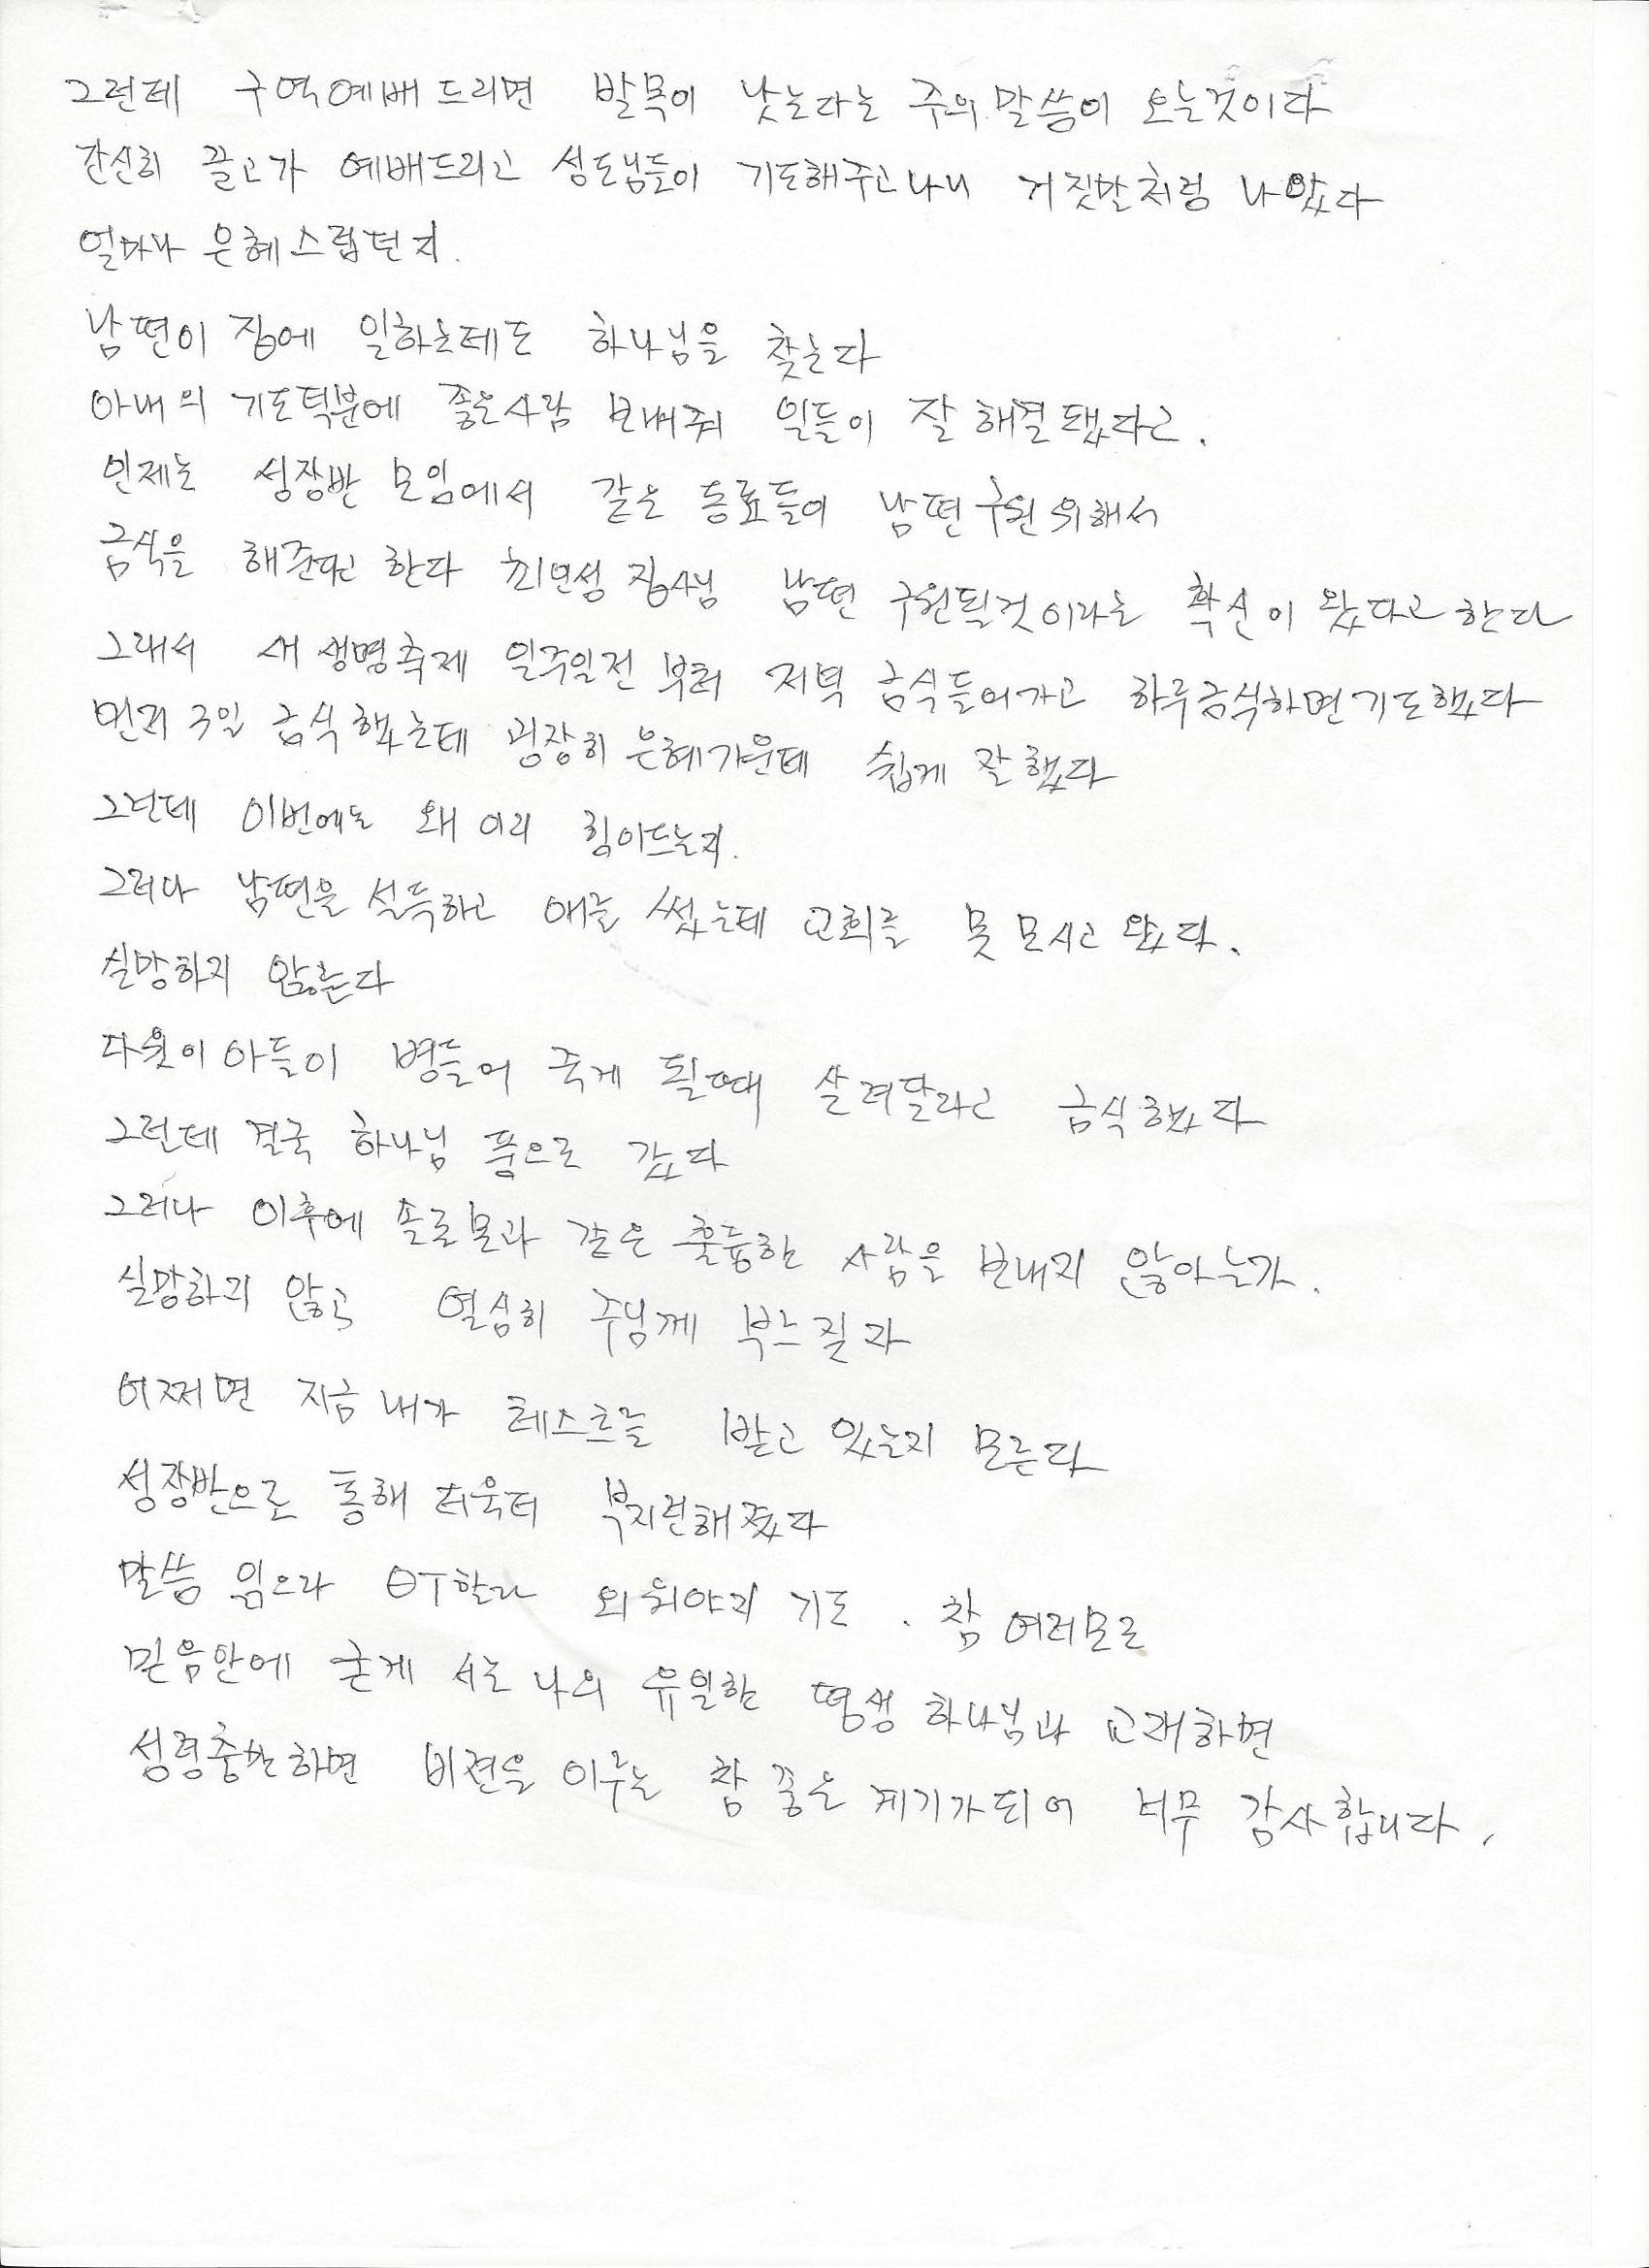 그런데 구역예배드리면 발목이 낫는다는 주의 말씀이 오는것이다
간신히 끌고가 예배드리고 성도님들이 기도해주고나니 거짓말처럼 나았다
얼마나 은혜스럽던지.
남편이 집에 일하는데도 하나님을 찾는다
아내의 기도덕분에 좋은사람 보내줘 일들이 잘 해결됐다고.
언제는 성장반 모임에서 같은 동료들이 남편구원 위해서
금식을 해준다고 한다 집사님 남편 구원될것이라는 확신이 왔다고 한다
그래서 새생명축제 일주일전 부터 저녁 금식들어가고 하루금식하면기도했다
먼저 3일 금식했는데 굉장히 은혜가운데 쉽게 잘했다
그런데 이번에는 왜 이리 힘이드는지.
그러나 남편을 설득하고 애를 썼는데 교회를 못 모시고 왔다.
실망하지 않는다
다윗이 아들이 병들어 죽게 될때 살려달라고 금식했다
그런데 결국 하나님 품으로 갔다
그러나 이후에 솔로몬과 같은 훌륭한 사람을 보내지 않아는가.
실망하지 않고 열심히 주님께 부르짖자
어쩌면 지금 내가 테스트를 받고 있는지 모른다
성장반으로 통해 더욱더 부지런해졌다
말씀 읽으랴 QT할랴 외워야지 기도. 참 여러모로
믿음안에 굳게 서는 나의 유일한 평생 하나님과 교재하면
성령충만하면 비젼을 이루는 참 좋은 계기가되어 너무 감사합니다.